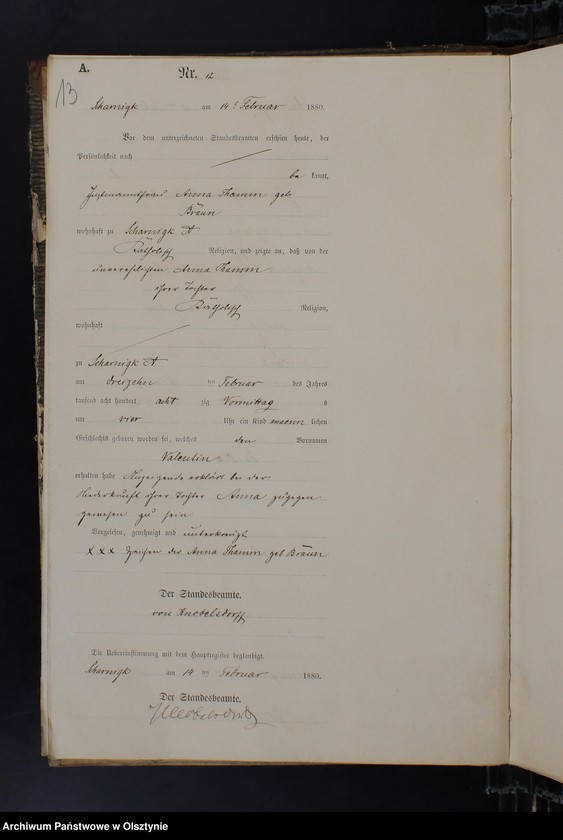 A.
Nr. 12
13
Scharnigk am 14t Februar 1880.
Vor dem unterzeichneten Standesbeamten erschien heute, der
Persönlichkeit nach
be kannt,
Instmannsfrau Anna Thamm geb
Braun
wohnhaft zu Scharnigk A
Katholisch Religion, und zeigte an, daß von der
unverehelichten Anna Thamm
ihrer Tochter
Katholisch Religion,
wohnhaft
zu Scharnigk A
am dreizehn ten Februar des Jahres
tausend acht hundert acht zig Vormittag s
um vier Uhr ein Kind maenn lichen
Geschlechts geboren worden sei, welches den Vornamen
Valentin
erhalten habe Anzeigende erklärt bei der
Niederkunft ihrer Tochter Anna zugegen
gewesen zu sein
Vorgelesen, genehmigt und unterkreuzt
XXX Zeichen der Anna Thamm geb Braun
Der Standesbeamte.
von Knobelsdorff
Die Uebereinstimmung mit dem Hauptregister beglaubigt.
Scharnigk am 14 ten Februar 1880.
Der Standesbeamte.
Archiwum Państwowe w Olsztynie